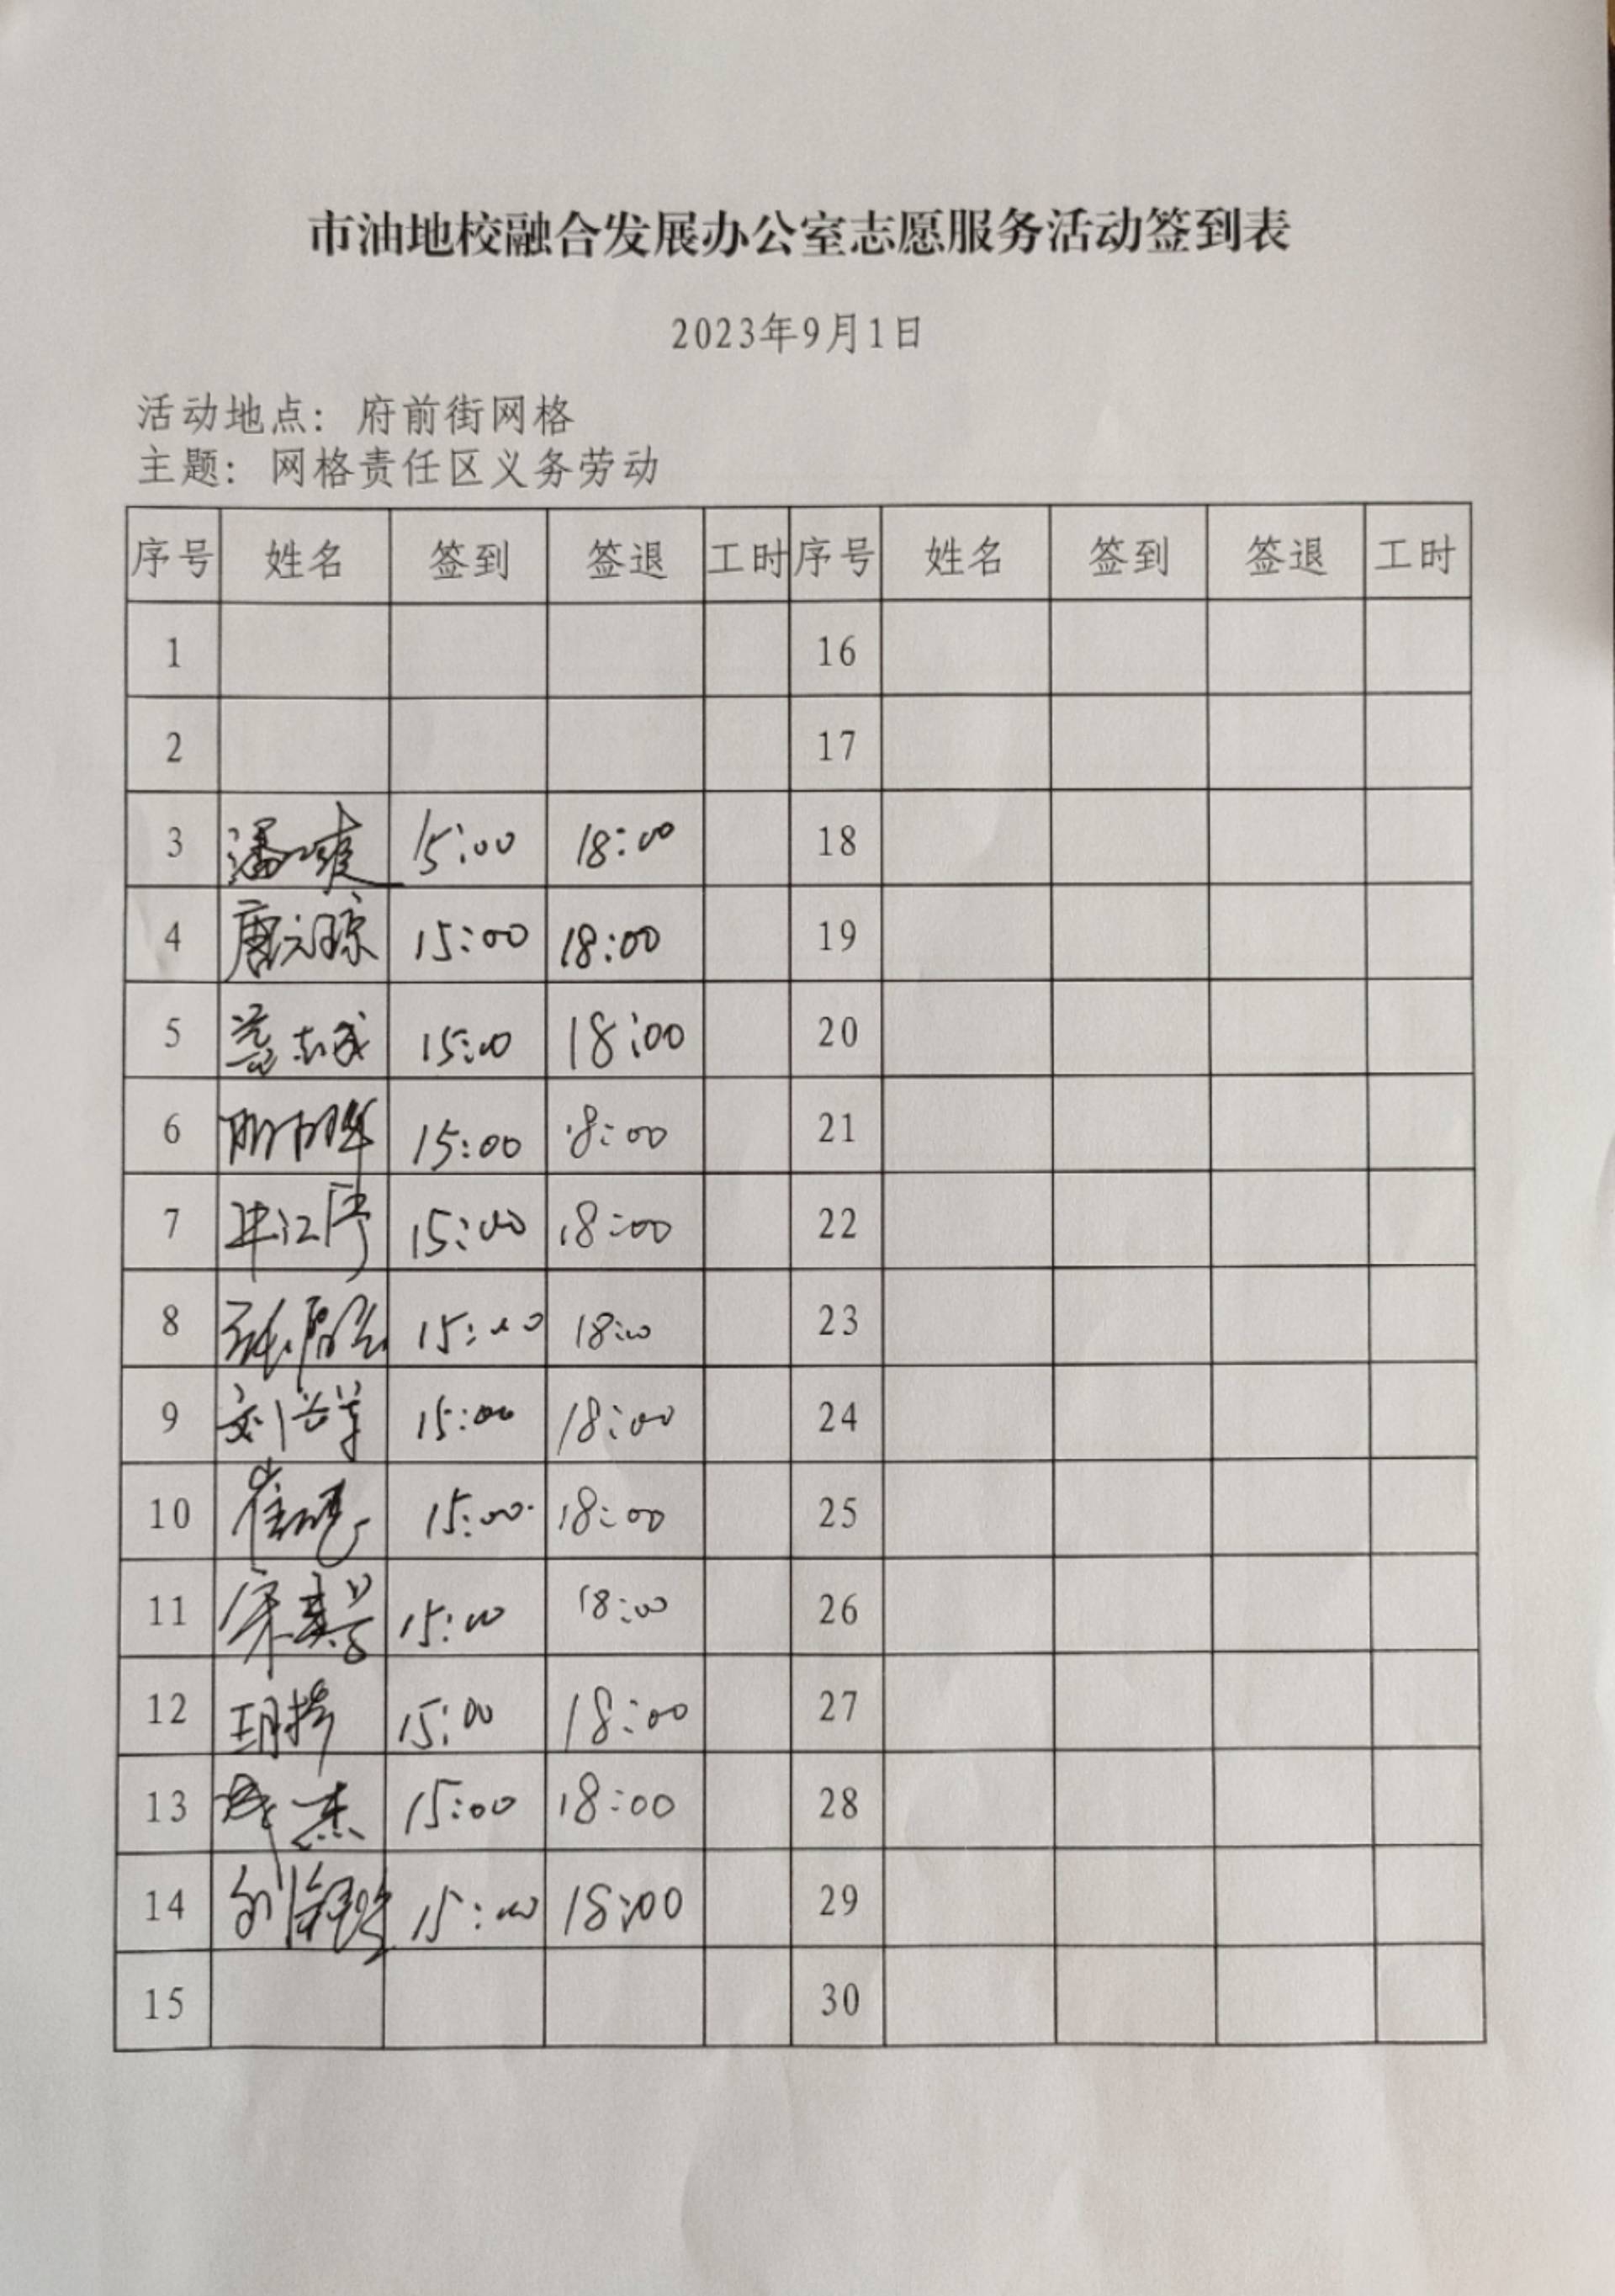 市油地校融合发展办公室志愿服务活动签到表
2023年9月1日
活动地点：府前街网格
主题：网格责任区义务劳动
序号 姓名 签到 签退 工时 序号 姓名 签到 签退 工时
1 16
2 17
3 15:00 18:00 18
4 15:00 18:00 19
5 15:00 18:00 20
6 15:00 18:00 21
7 15:00 18:00 22
8 15:00 18:00 23
9 15:00 18:00 24
10 15:00 18:00 25
11 15:00 18:00 26
12 15:00 18:00 27
13 15:00 18:00 28
14 15:00 18:00 29
15 30